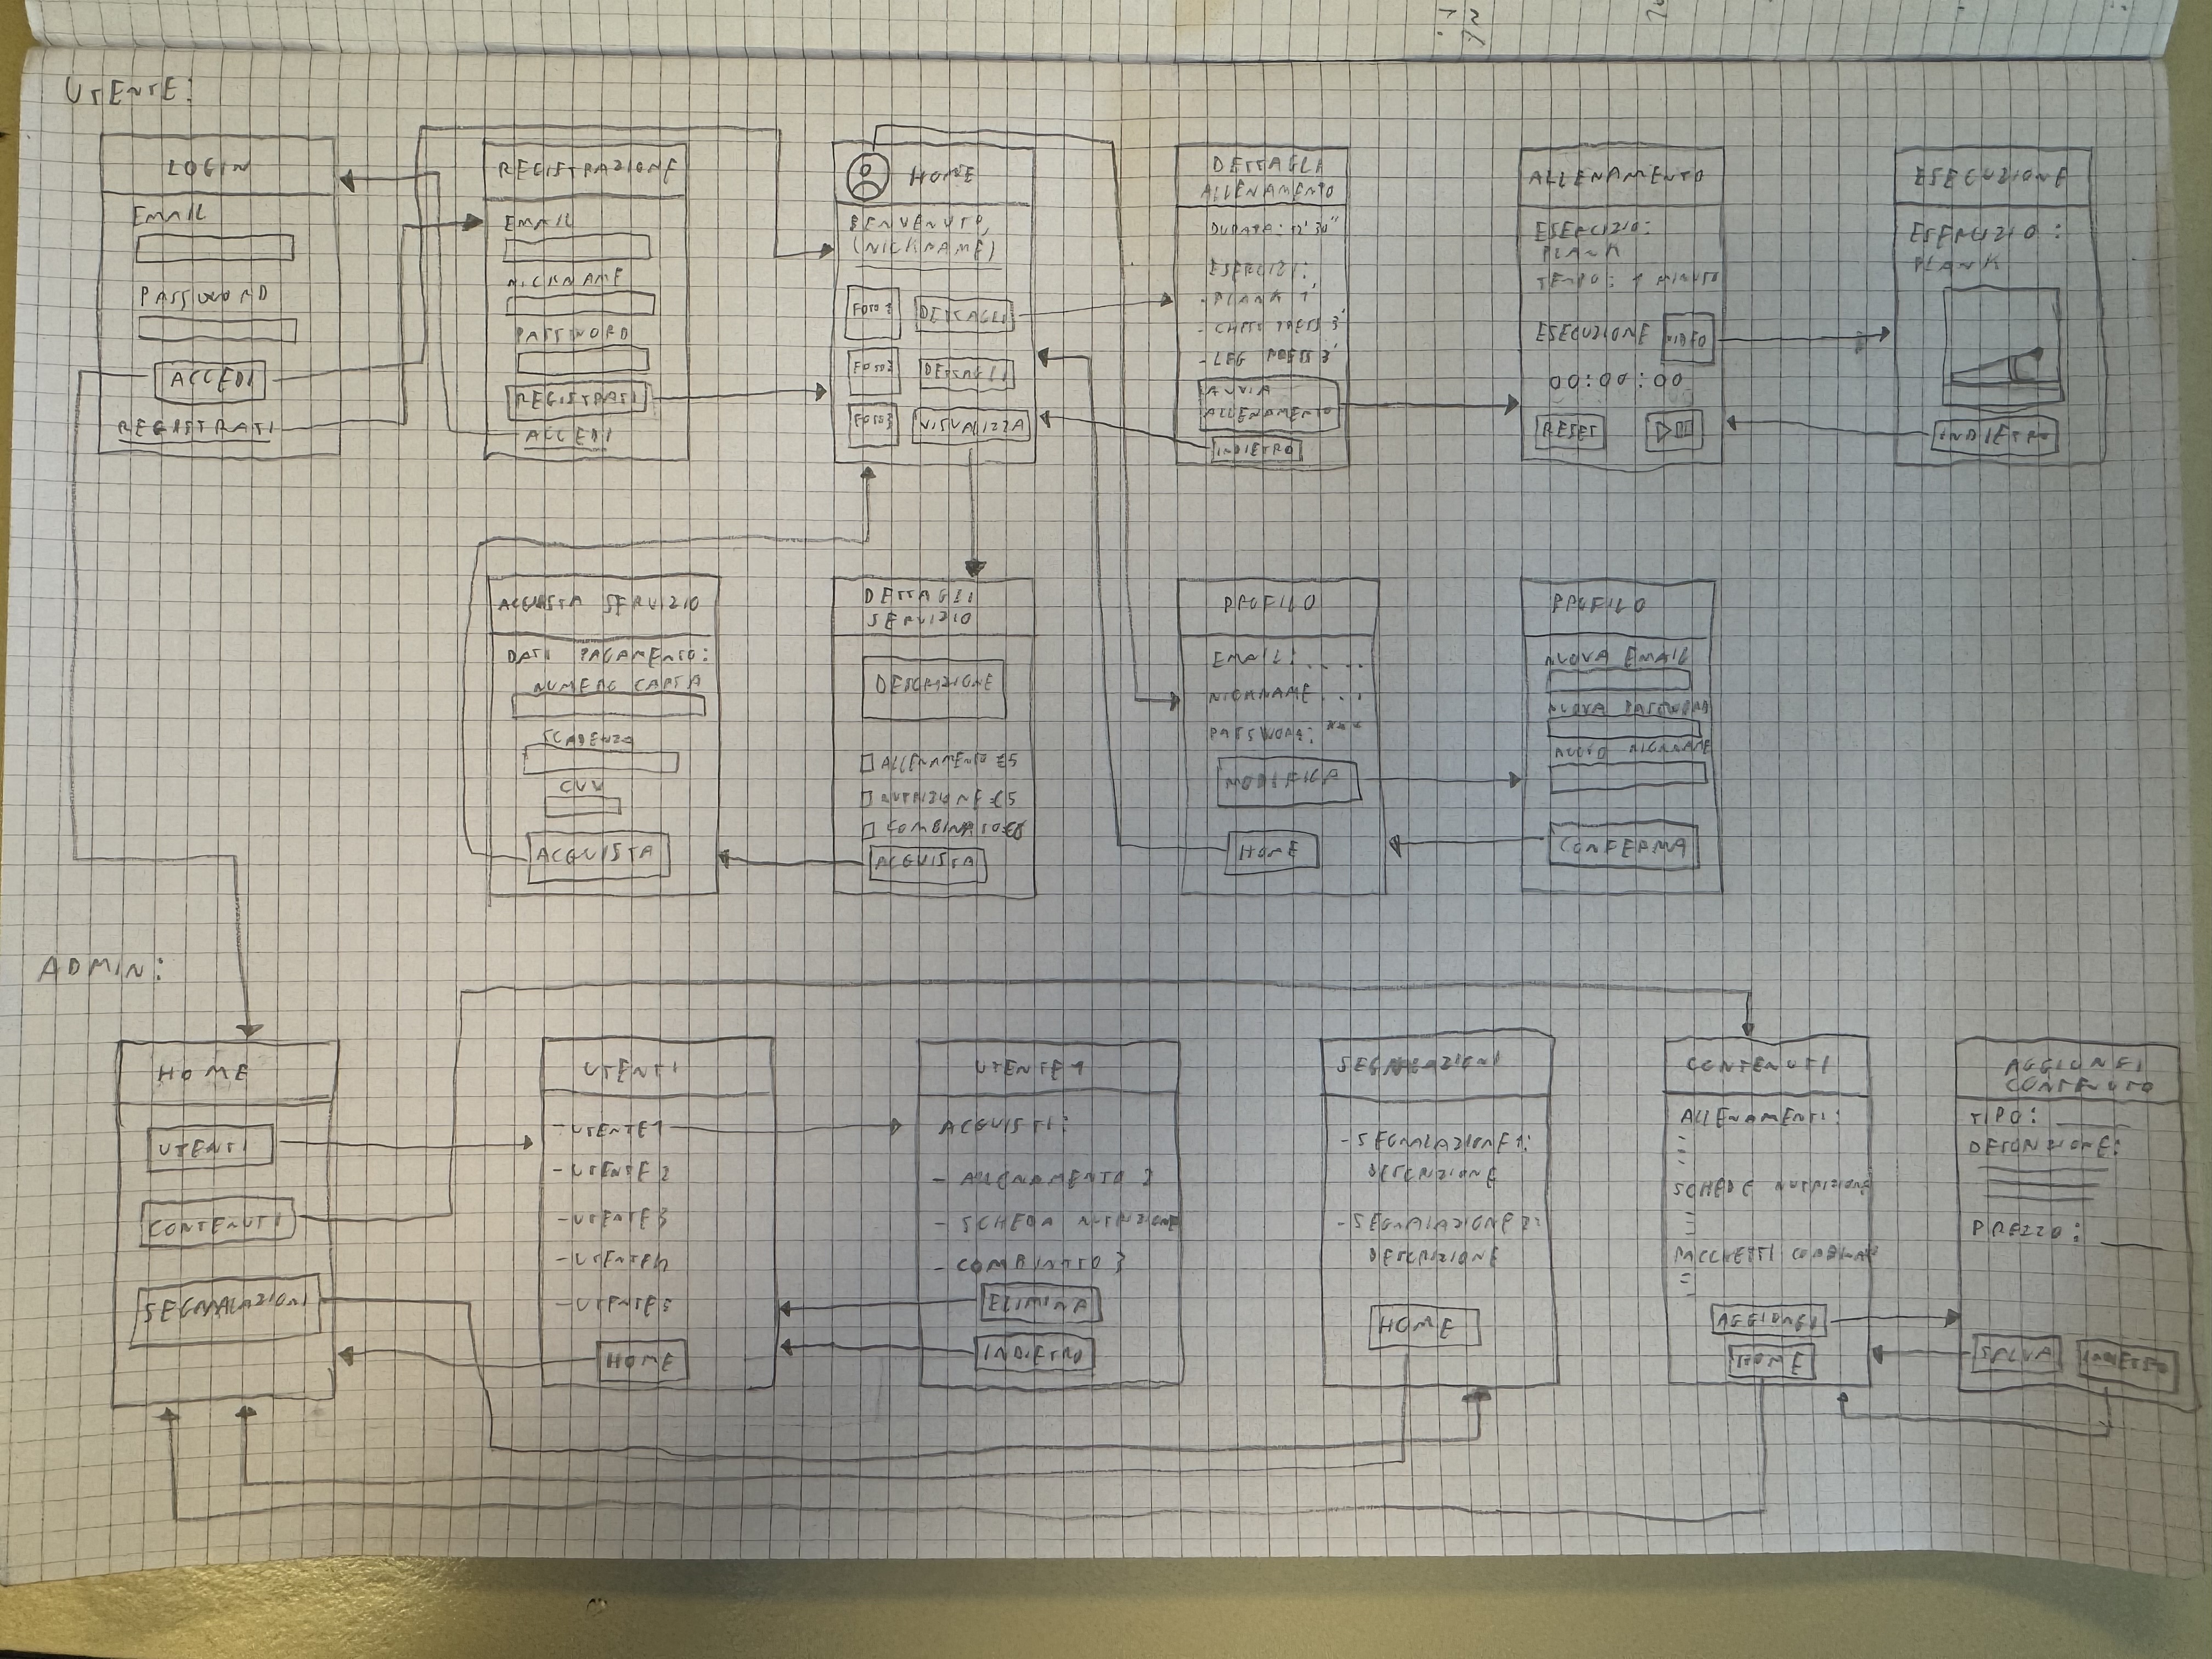 UTENTE:
LOGIN
EMAIL
PASSWORD
ACCEDI
REGISTRATI
REGISTRAZIONE
EMAIL
NICKNAME
PASSWORD
REGISTRATI
ACCEDI
HOME
BENVENUTO,
(NICKNAME)
FOTO 1
DETTAGLI
FOTO 2
DETTAGLI
FOTO 3
VISUALIZZA
DETTAGLI
ALLENAMENTO
DURATA:
ESERCIZI:
- PLANK 1'
- CHEST PRESS 3'
- LEG PRESS 3'
AVVIA
ALLENAMENTO
INDIETRO
ALLENAMENTO
ESERCIZIO:
PLANK
TEMPO: 1 MINUTO
ESECUZIONE VIDEO
00:00:00
RESET
ESECUZIONE
ESERCIZIO:
PLANK
INDIETRO
ACQUISTA SERVIZIO
DATI PAGAMENTO:
NUMERO CARTA
SCADENZA
CVV
ACQUISTA
DETTAGLI
SERVIZIO
DESCRIZIONE
ALLENAMENTO €5
NUTRIZIONE €5
COMBINATO €8
ACQUISTA
PROFILO
EMAIL: . . . .
NICKNAME . . .
PASSWORD: ***
MODIFICA
HOME
PROFILO
NUOVA EMAIL
NUOVA PASSWORD
NUOVO NICKNAME
CONFERMA
ADMIN:
HOME
UTENTI
CONTENUTI
SEGNALAZIONI
UTENTI
- UTENTE 1
- UTENTE 2
- UTENTE 3
- UTENTE 4
- UTENTE 5
HOME
UTENTE 1
ACQUISTI:
- ALLENAMENTO 2
- SCHEDA NUTRIZIONE
- COMBINATO 3
ELIMINA
INDIETRO
SEGNALAZIONI
- SEGNALAZIONE 1:
DESCRIZIONE
- SEGNALAZIONE 2:
DESCRIZIONE
HOME
CONTENUTI
ALLENAMENTI:
SCHEDE NUTRIZIONE
PACCHETTI COMBINATI
AGGIUNGI
HOME
AGGIUNGI
CONTENUTO
TIPO:
DESCRIZIONE:
PREZZO:
SALVA
INDIETRO